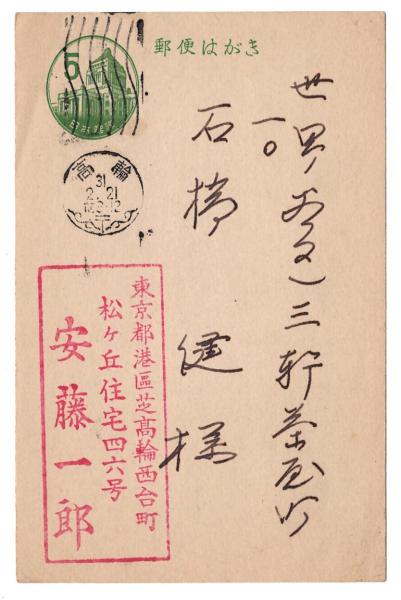 郵便はがき
5
高輪
31
2.21
世田谷区三軒茶屋町
一〇
石橋 健様
東京都港區芝高輪西台町
松ヶ丘住宅四六号
安藤一郎